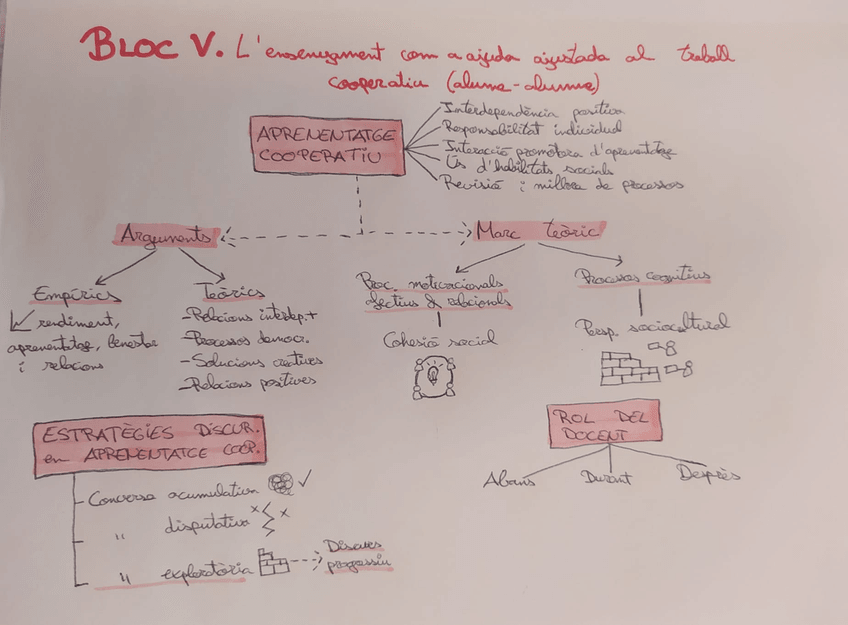 BLOC V. L'ensenyament com a ajuda ajustada al treball
cooperatiu (alumne-alumne)
APRENENTATGE
COOPERATIU
Interdependència positiva
Responsabilitat individual
Interacció promotora d'aprenentatge
Ús d'habilitats socials
Revisió i millora de processos
Arguments
Marc teòric
Empírics
rendiment,
aprenentatge, benestar
i relacions
Teòrics
-Relacions interdep.+
-Processos democr.
-Solucions creatives
-Relacions positives
Proc. motivacionals
afectius & relacionals
Cohesió social
Processos cognitius
Persp. sociocultural
ESTRATÈGIES DISCUR.
en APRENENTATGE COOP.
Conversa acumulativa
" disputativa
" exploratòria
Discurs
progressiu
ROL DEL
DOCENT
Abans
Durant
Després